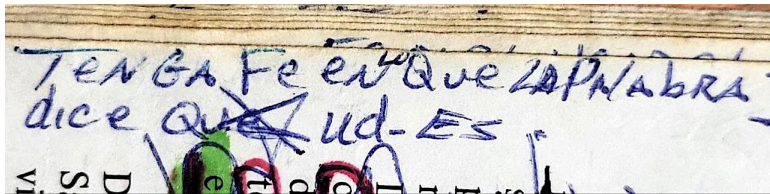 TENGA Fe eN lo Que LA PALAbRA
dice Que ud-Es